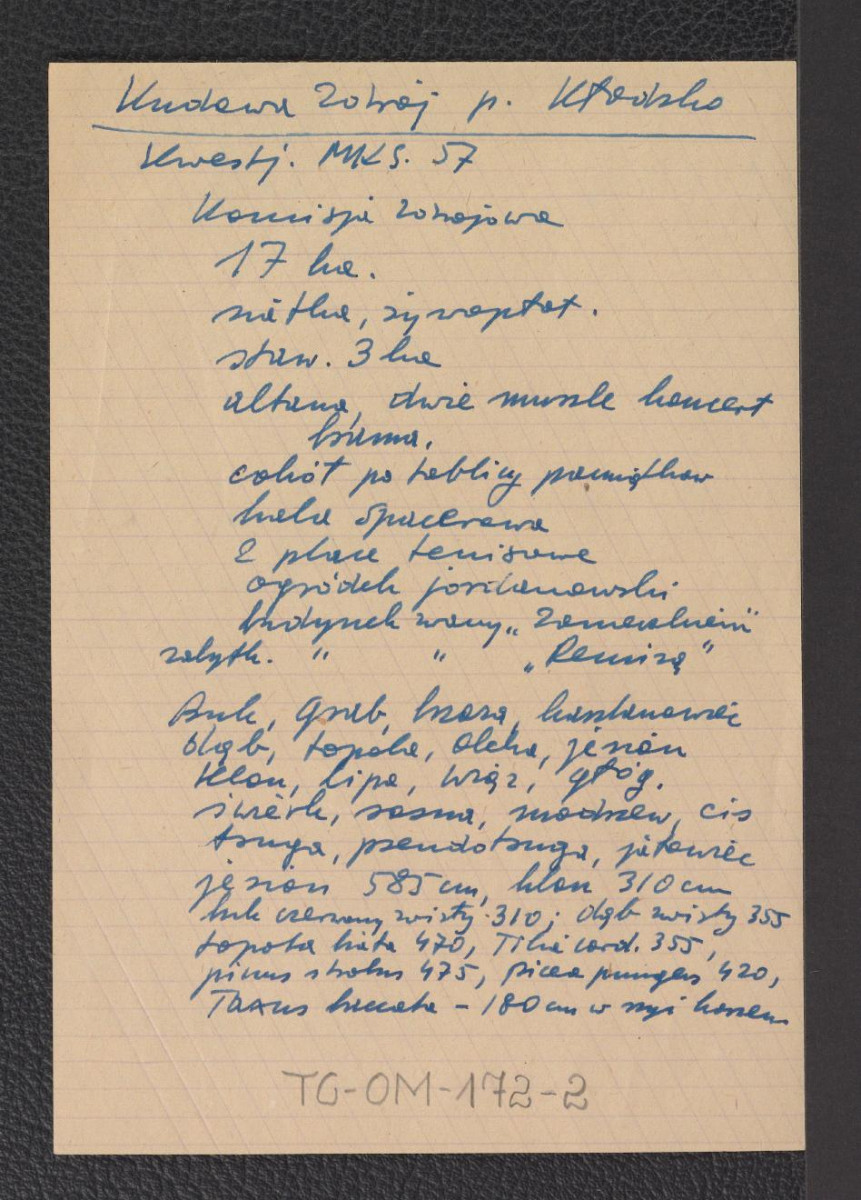 Kudowa Zdrój p. Kłodzko
Kwestj. MKS. 57
Komisja zdrojowa
17 ha.
siatka, żywopłot.
staw. 3 ha
altana, dwie muszle koncert
brama.
cokół po tablicy pamiątkow
hala spacerowa
2 place tenisowe
ogródek jordanowski
budynek zwany „Zameczkiem"
zabytk. " " „Remizą"
Buk, Grab, brzoza, kasztanowiec
dąb, topola, olcha, jesion
klon, lipa, wiąz, głóg.
świerk, sosna, modrzew, cis
tsuga, pseudotsuga, jałowiec
jesion 585 cm, klon 310 cm
buk czerwony zwisły 310; dąb zwisły 355
topola biała 470, Tilia cord. 355,
pinus strobus 475, picea pungens 420,
Taxus baccata – 180 cm w szyi korzen
TG-OM-172-2